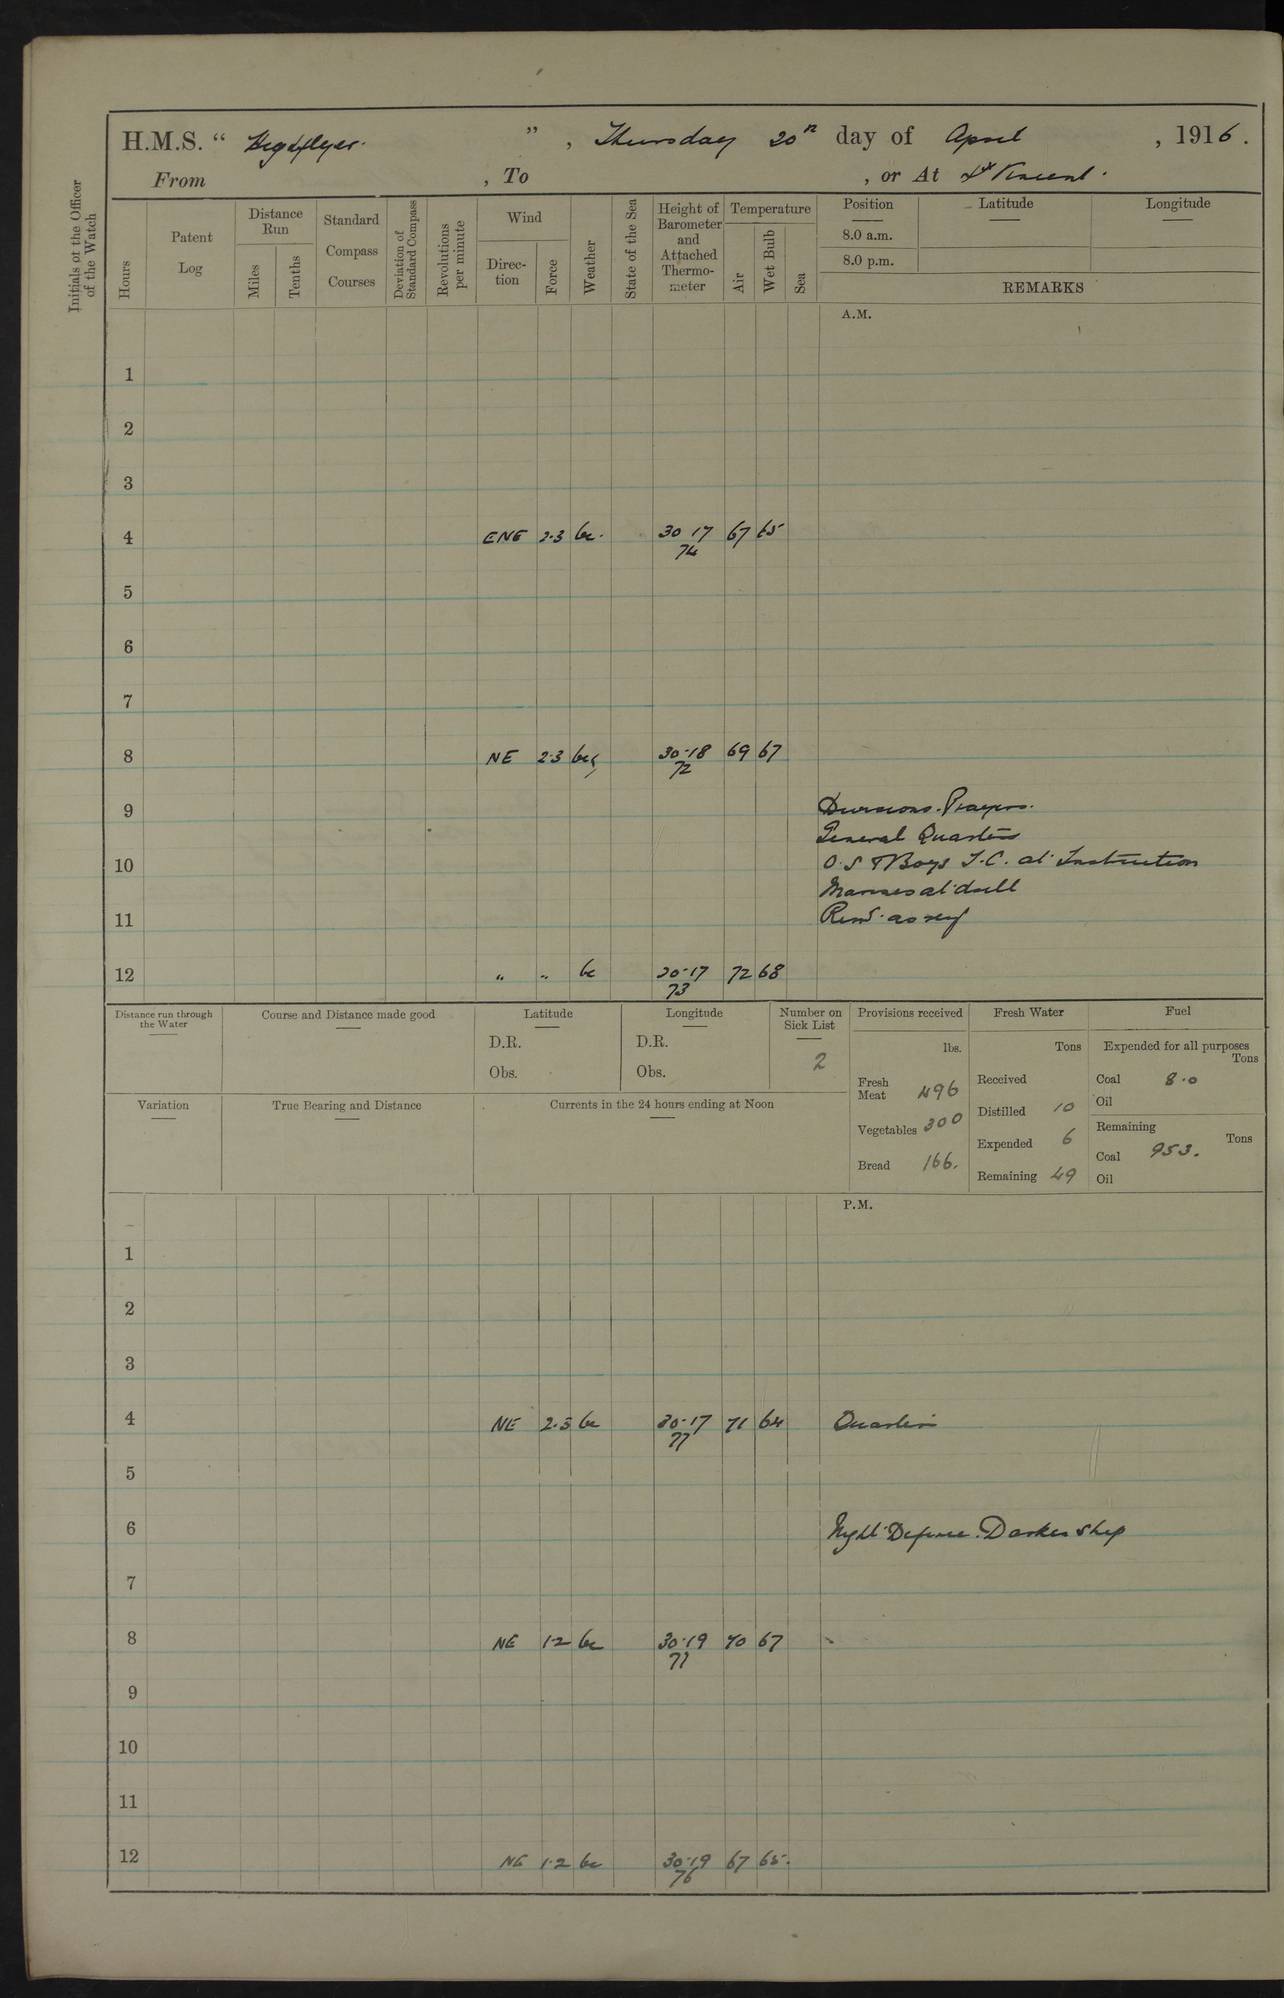 H.M.S. " Highflyer. " , Thursday 20th day of April , 1916.
From , To , or At St Vincent.
Initials of the Officer of the Watch
Hours
Patent Log
Distance Run
Miles
Tenths
Standard Compass Courses
Deviation of Standard Compass
Revolutions per minute
Wind
Direc-tion
Force
Weather
State of the Sea
Height of Barometer and Attached Thermo-meter
Temperature
Air
Wet Bulb
Sea
Position Latitude Longitude
8.0 a.m.
8.0 p.m.
REMARKS
A.M.
1
2
3
4 ENE 2.3 bc. 30 17 67 65
74
5
6
7
8 NE 2.3 bc 30.18 69 67
72
9 Divisions. Prayers.
General Quarters
10 O.S & Boys T.C. at Instruction
Marines at drill
11 Remr. as req
12 " " bc 30.17 72 68
73
Distance run through the Water
Course and Distance made good
Latitude
D.R.
Obs.
Longitude
D.R.
Obs.
Number on Sick List
2
Provisions received
lbs.
Fresh Meat 496
Vegetables 300
Bread 166.
Fresh Water
Tons
Received
Distilled 10
Expended 6
Remaining 49
Fuel
Expended for all purposes
Tons
Coal 8.0
Oil
Remaining
Tons
Coal 953.
Oil
Variation
True Bearing and Distance
Currents in the 24 hours ending at Noon
P.M.
1
2
3
4 NE 2.3 bc 30.17 71 64 Quarters
77
5
6 Night Defence. Darken Ship
7
8 NE 1.2 bc 30.19 70 67
71
9
10
11
12 NE 1.2 bc 30.19 67 65.
76